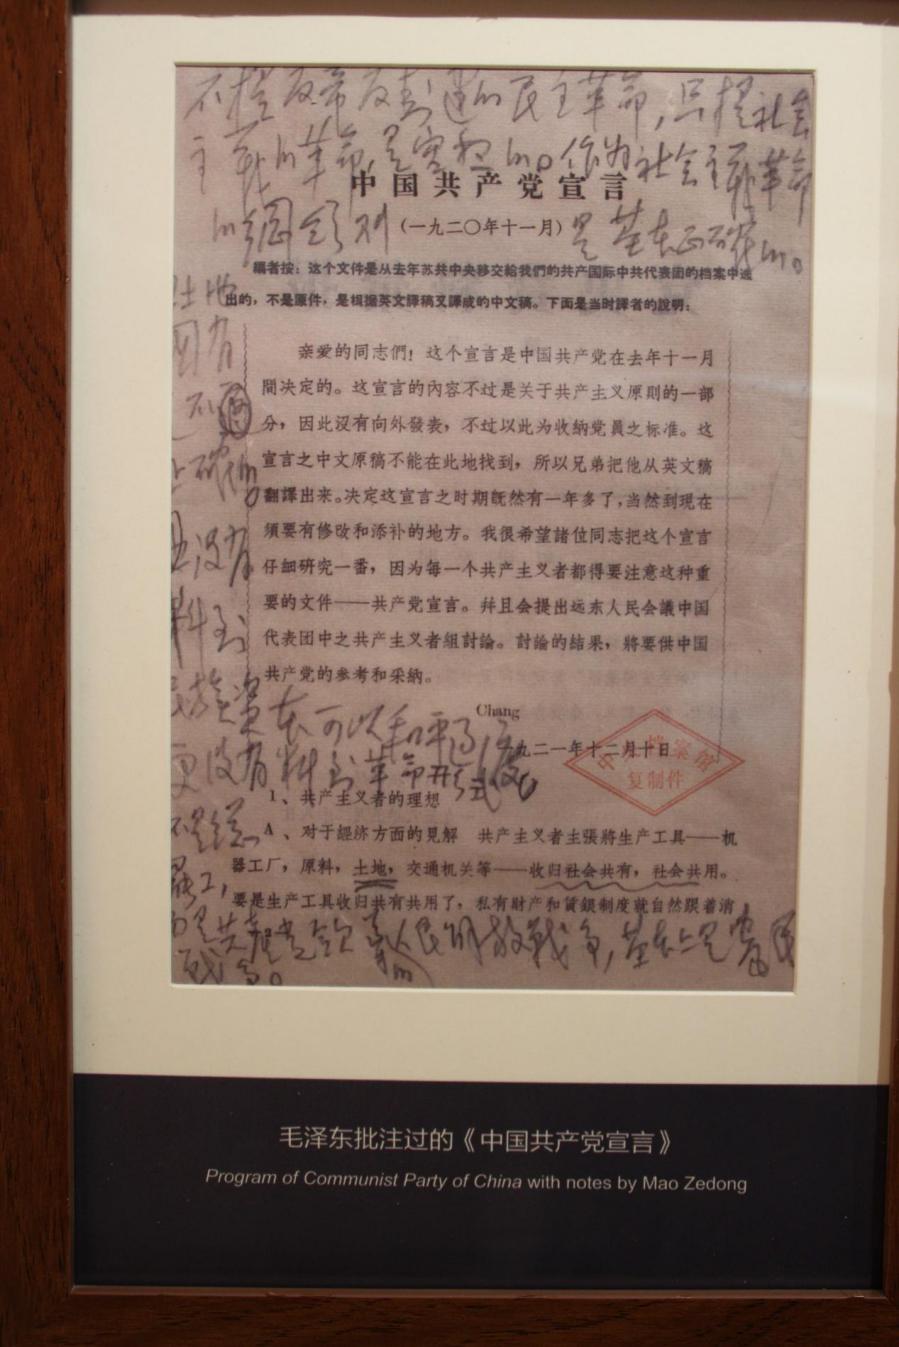 不提反帝反封建的民主革命，只提社会
主义的革命，是空想的。作为社会主义革命
的纲领则是基本正确的。
中国共产党宣言
（一九二〇年十一月）
編者按：这个文件是从去年苏共中央移交給我們的共产国际中共代表团的档案中选
出的，不是原件，是根据英文譯稿又譯成的中文稿。下面是当时譯者的說明：
土地
国有
正确的。
但没有
料到
亲爱的同志們！这个宣言是中国共产党在去年十一月
間决定的。这宣言的內容不过是关于共产主义原則的一部
分，因此沒有向外發表，不过以此为收納党員之标准。这
宣言之中文原稿不能在此地找到，所以兄弟把他从英文稿
翻譯出来。决定这宣言之时期旣然有一年多了，当然到現在
須要有修改和添补的地方。我很希望諸位同志把这个宣言
仔細研究一番，因为每一个共产主义者都得要注意这种重
要的文件——共产党宣言。幷且会提出远东人民会議中国
代表团中之共产主义者組討論。討論的結果，將要供中国
共产党的参考和采納。
Chang
一九二一年十二月十日
中央档案馆
复制件
民族资本可以和平过渡
更没有料到革命形式
不是总
罢工，
而是共产党领导的人民解放战争，基本上是农民
战争。
1、共产主义者的理想
A、对于經济方面的見解 共产主义者主張將生产工具——机
器工厂，原料，土地，交通机关等——收归社会共有，社会共用。
要是生产工具收归共有共用了，私有財产和賃銀制度就自然跟着消
毛泽东批注过的《中国共产党宣言》
Program of Communist Party of China with notes by Mao Zedong